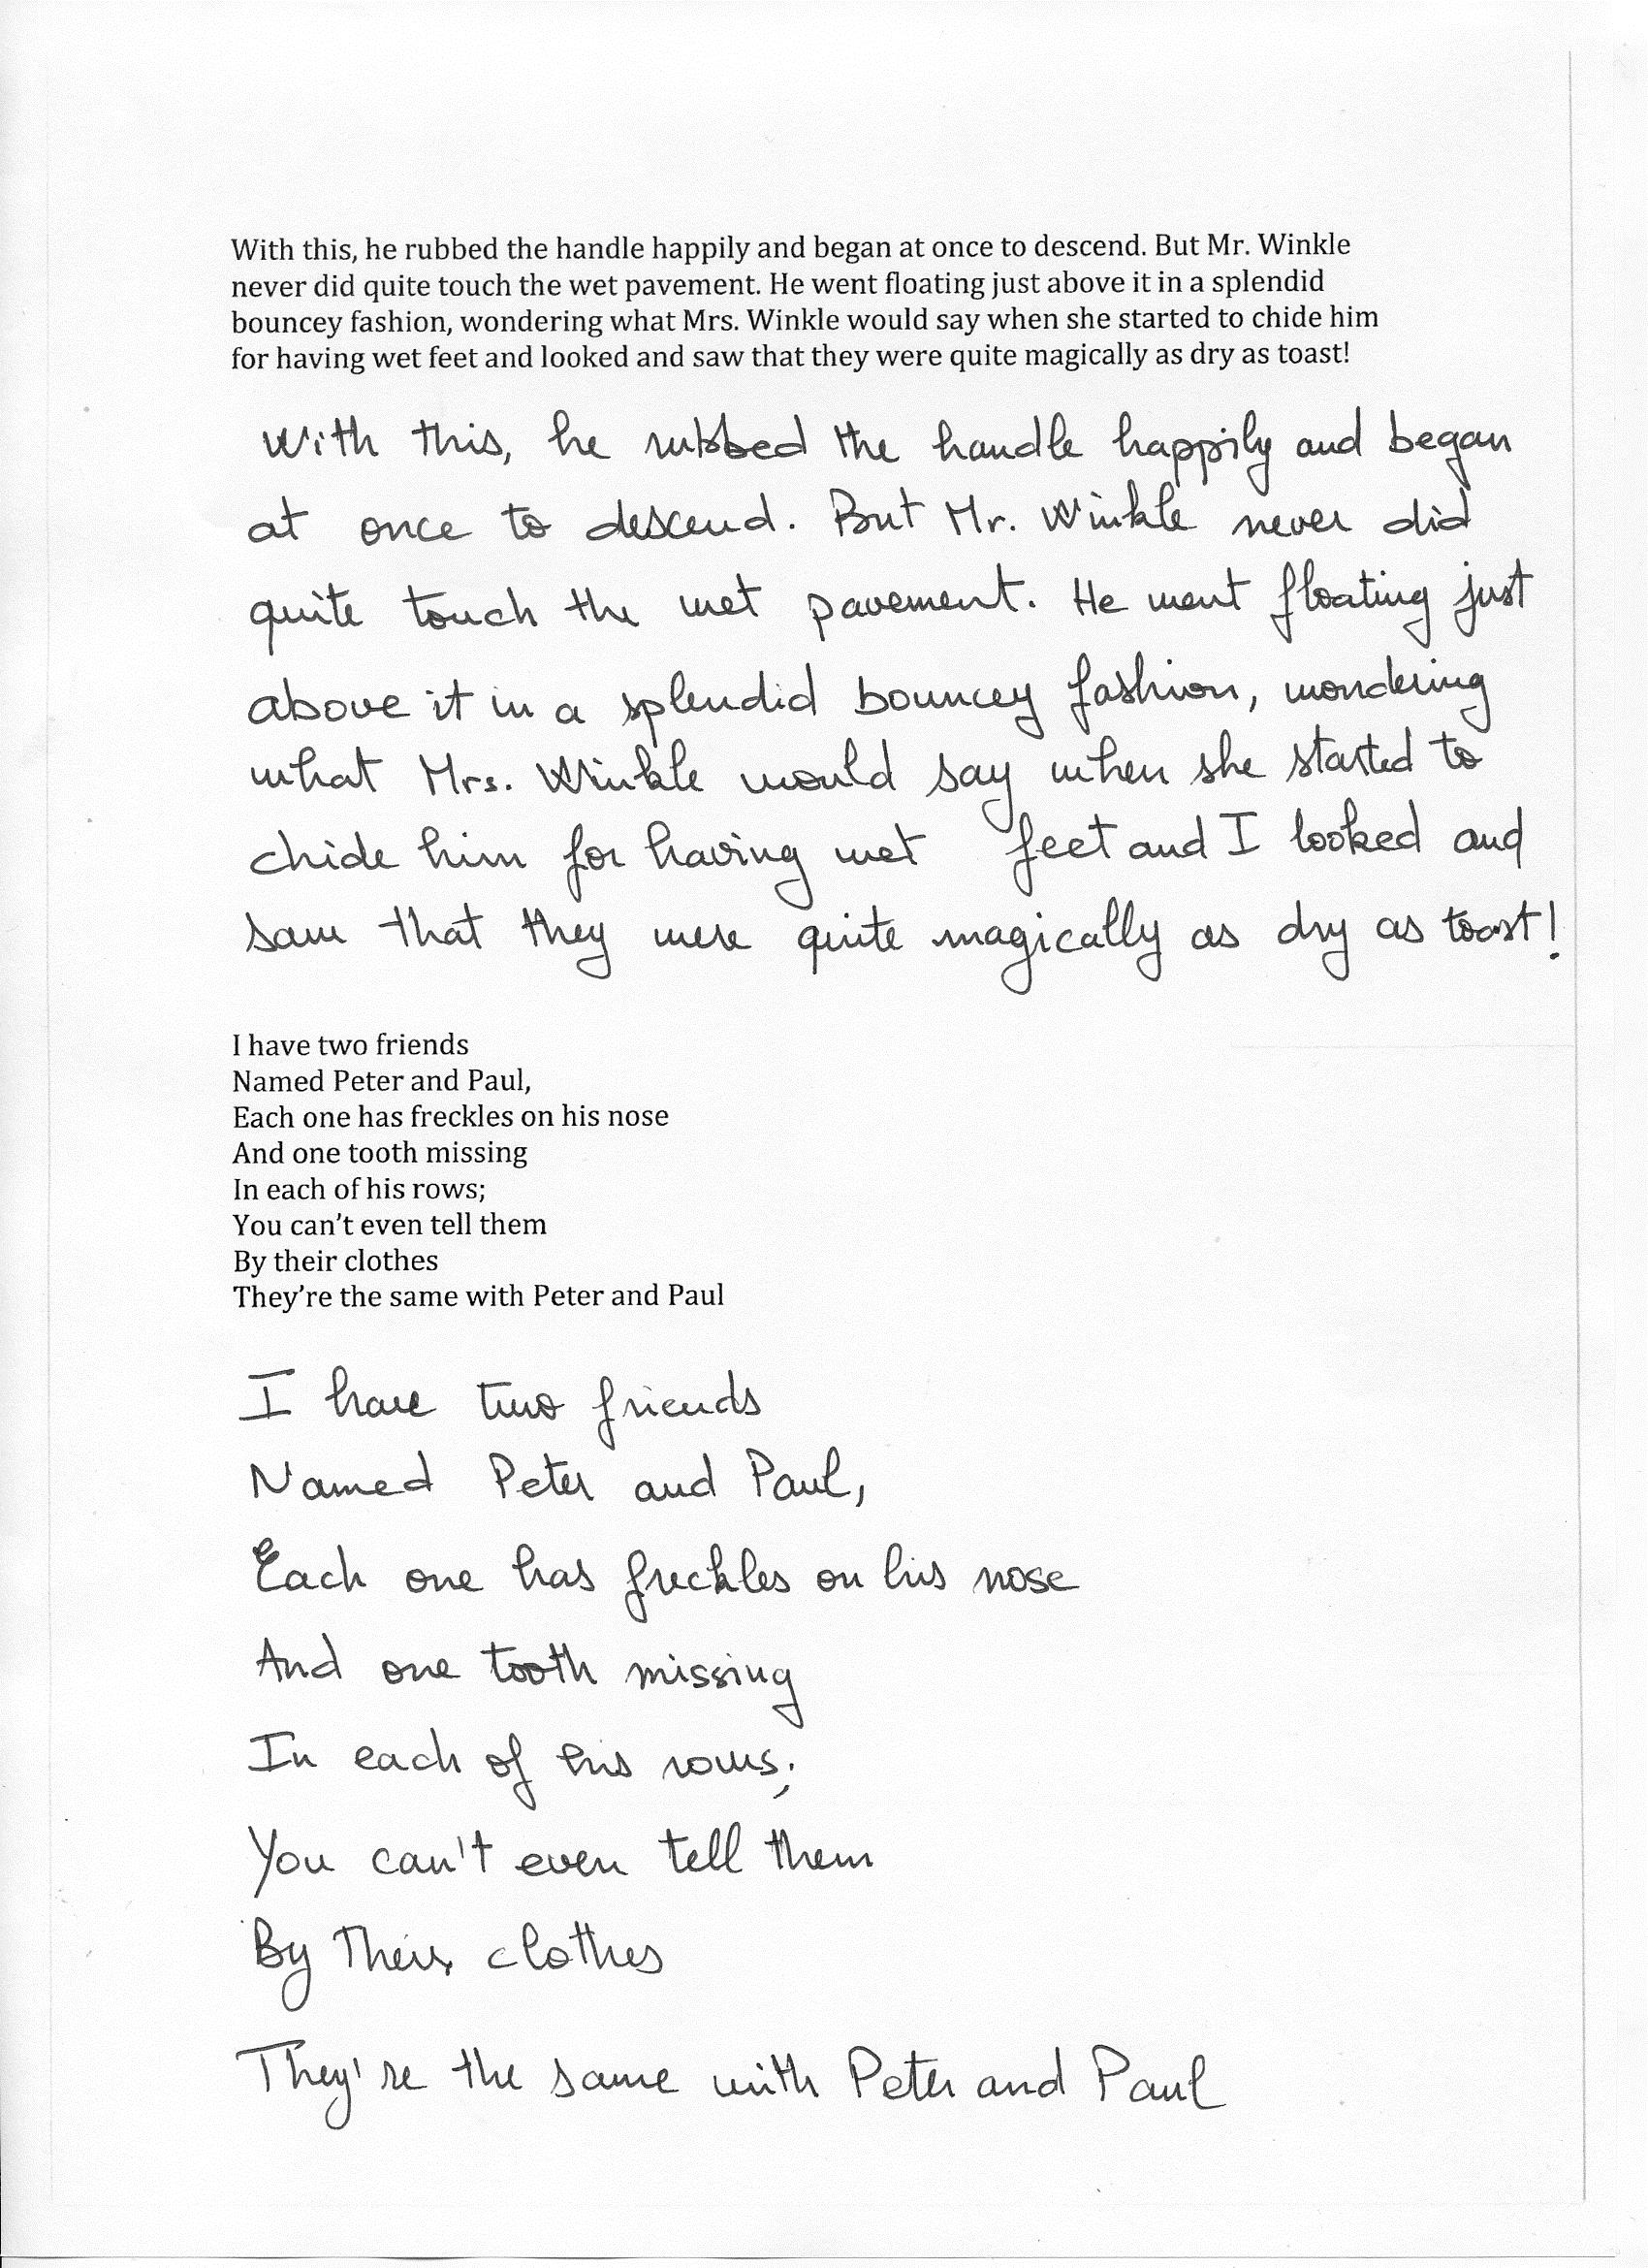 With this, he rubbed the handle happily and began at once to descend. But Mr. Winkle
never did quite touch the wet pavement. He went floating just above it in a splendid
bouncey fashion, wondering what Mrs. Winkle would say when she started to chide him
for having wet feet and looked and saw that they were quite magically as dry as toast!
With this, he rubbed the handle happily and began
at once to descend. But Mr. Winkle never did
quite touch the wet pavement. He went floating just
above it in a splendid bouncey fashion, wondering
what Mrs. Winkle would say when she started to
chide him for having wet feet and I looked and
saw that they were quite magically as dry as toast!
I have two friends
Named Peter and Paul,
Each one has freckles on his nose
And one tooth missing
In each of his rows;
You can’t even tell them
By their clothes
They’re the same with Peter and Paul
I have two friends
Named Peter and Paul,
Each one has freckles on his nose
And one tooth missing
In each of his rows;
You can't even tell them
By Their clothes
They're the same with Peter and Paul